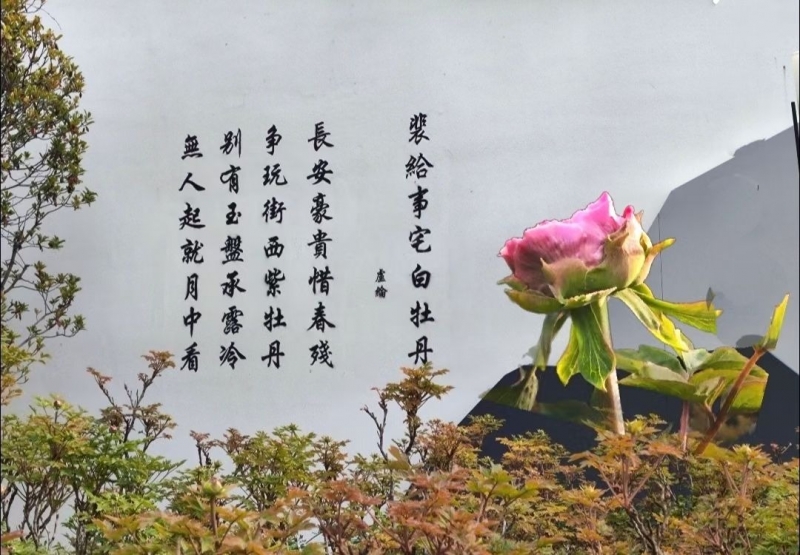 裴給事宅白牡丹
盧綸
長安豪貴惜春殘
争玩街西紫牡丹
别有玉盤承露冷
無人起就月中看